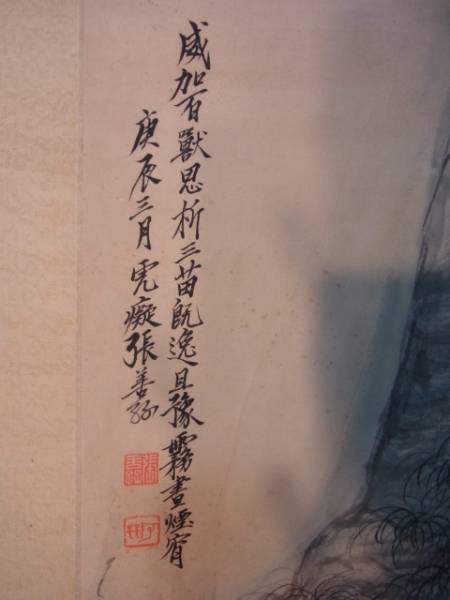 威加百獸恩析三苗既逸且豫霧晝煙宵
庚辰三月虎癡張善孖